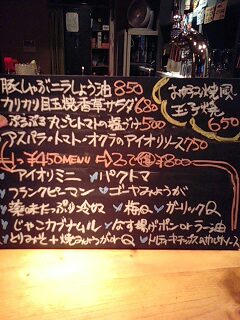 豚しゃぶニラしょう油 850
カリカリ目玉焼香草サラダ 680
ぷるぷる丸ごとトマトの塩づけ 500
アスパラ・トマト・オクラのアイオリソース 750
焼風
玉子焼
650
1つ ¥450 MENU 2つで ¥800
アイオリミニ パクトマ
フランクピーマン ゴーヤみょうが
薬味たっぷり冷や 梅Q ガーリックQ
じゃこカブナムル なす揚げポンとラー油
とりみそ+焼みょうがQ